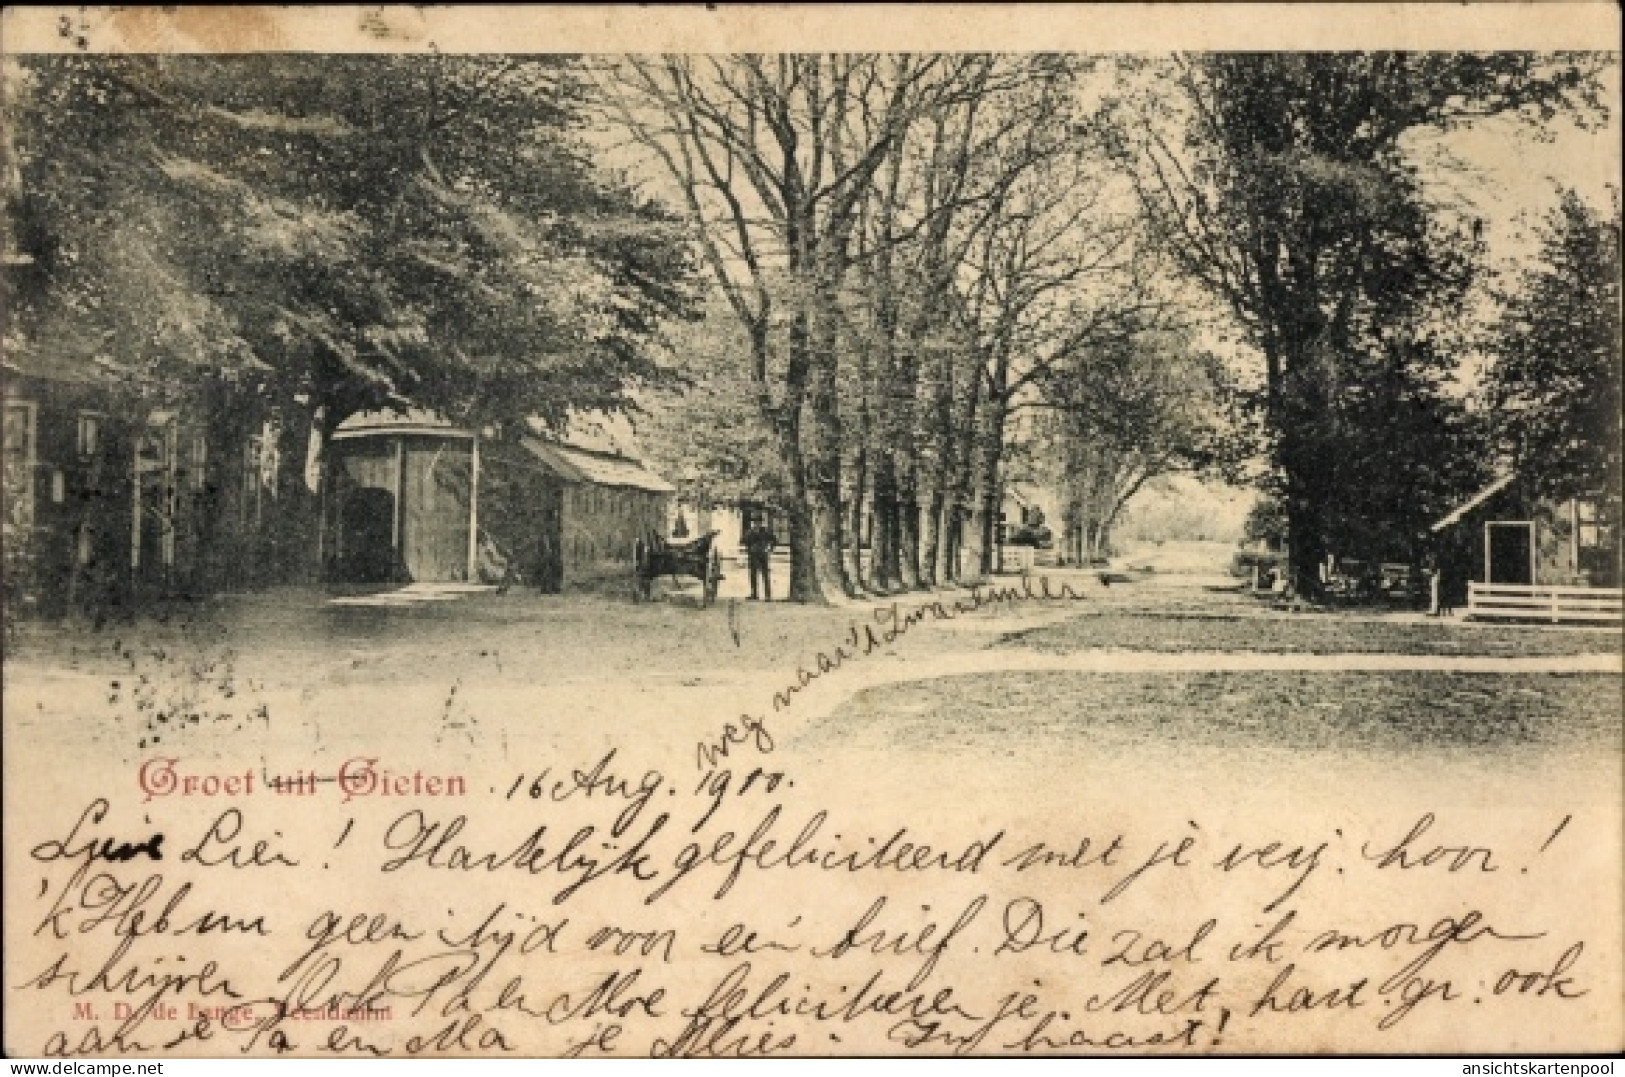 weg naar 't Zwanemeer
Groet uit Gieten 16 Aug. 1910.
Lieve Lien! Hartelijk gefeliciteerd met je verj. hoor!
'k Heb nu geen tijd voor een brief. Die zal ik morgen
schrijven. Ook Pa en Moe feliciteeren je. Met hart. gr. ook
M. D. de Lange, Veendamm
aan je Pa en Ma je Mies. In haast!
delcampe.net
ansichtskartenpool